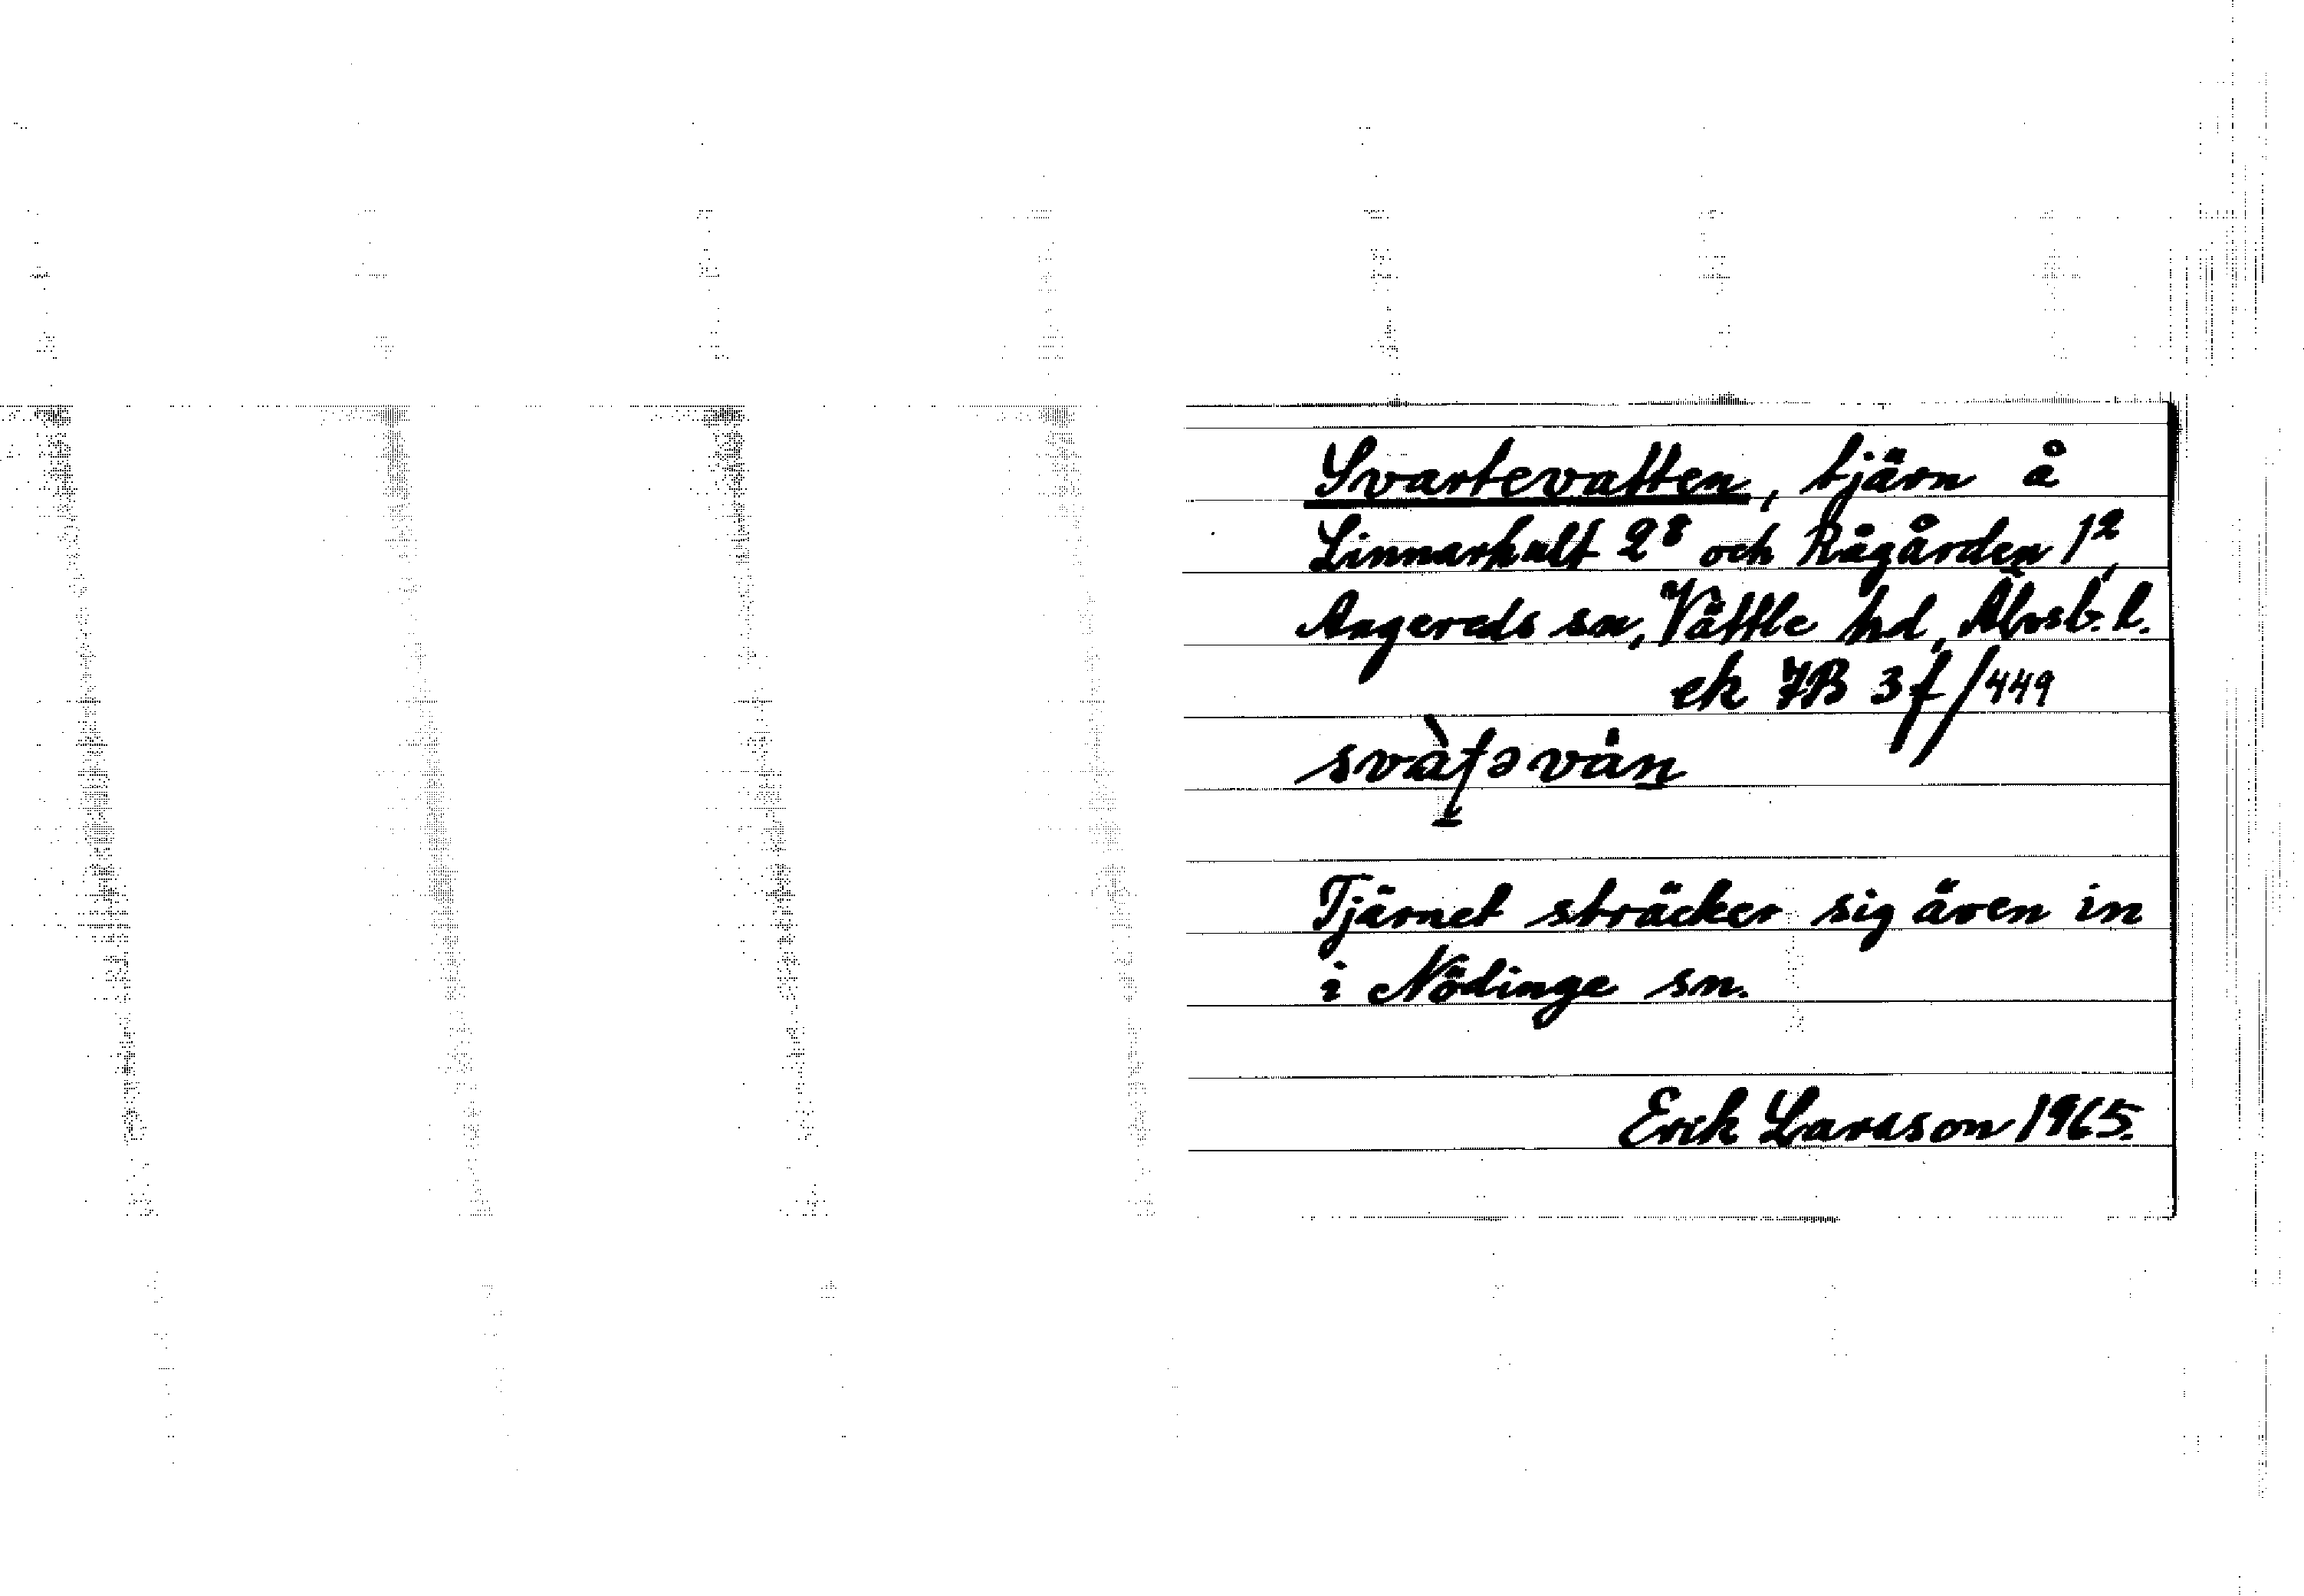 Svartevatten, tjärn å
Linnarhult 2⁸ och Rågården 1²,
Angereds sn, Vättle hd, Älvsb. l.
ek 7B 3f/449
Tjärnet sträcker sig även in
i Nödinge sn.
Erik Larsson 1965.